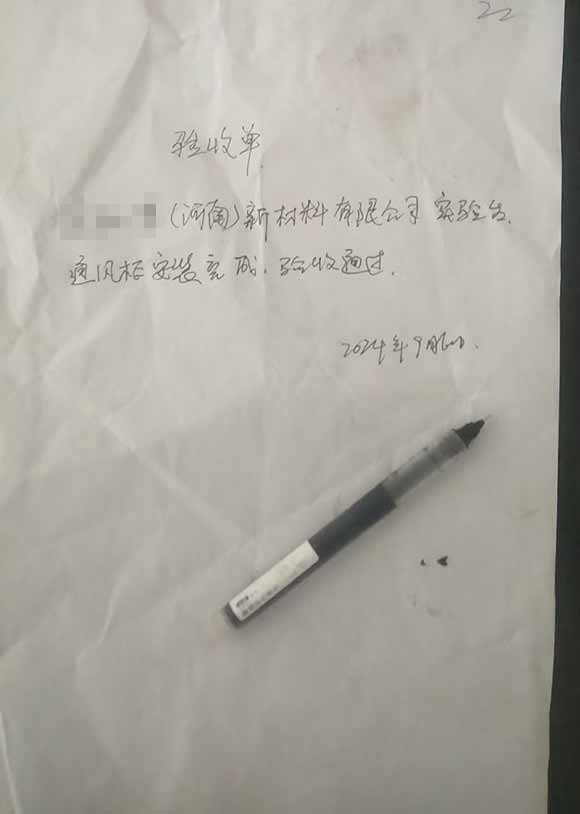 22
验收单
（河南）新材料有限公司 实验台、
通风柜安装完成，验收通过.
2024年9月